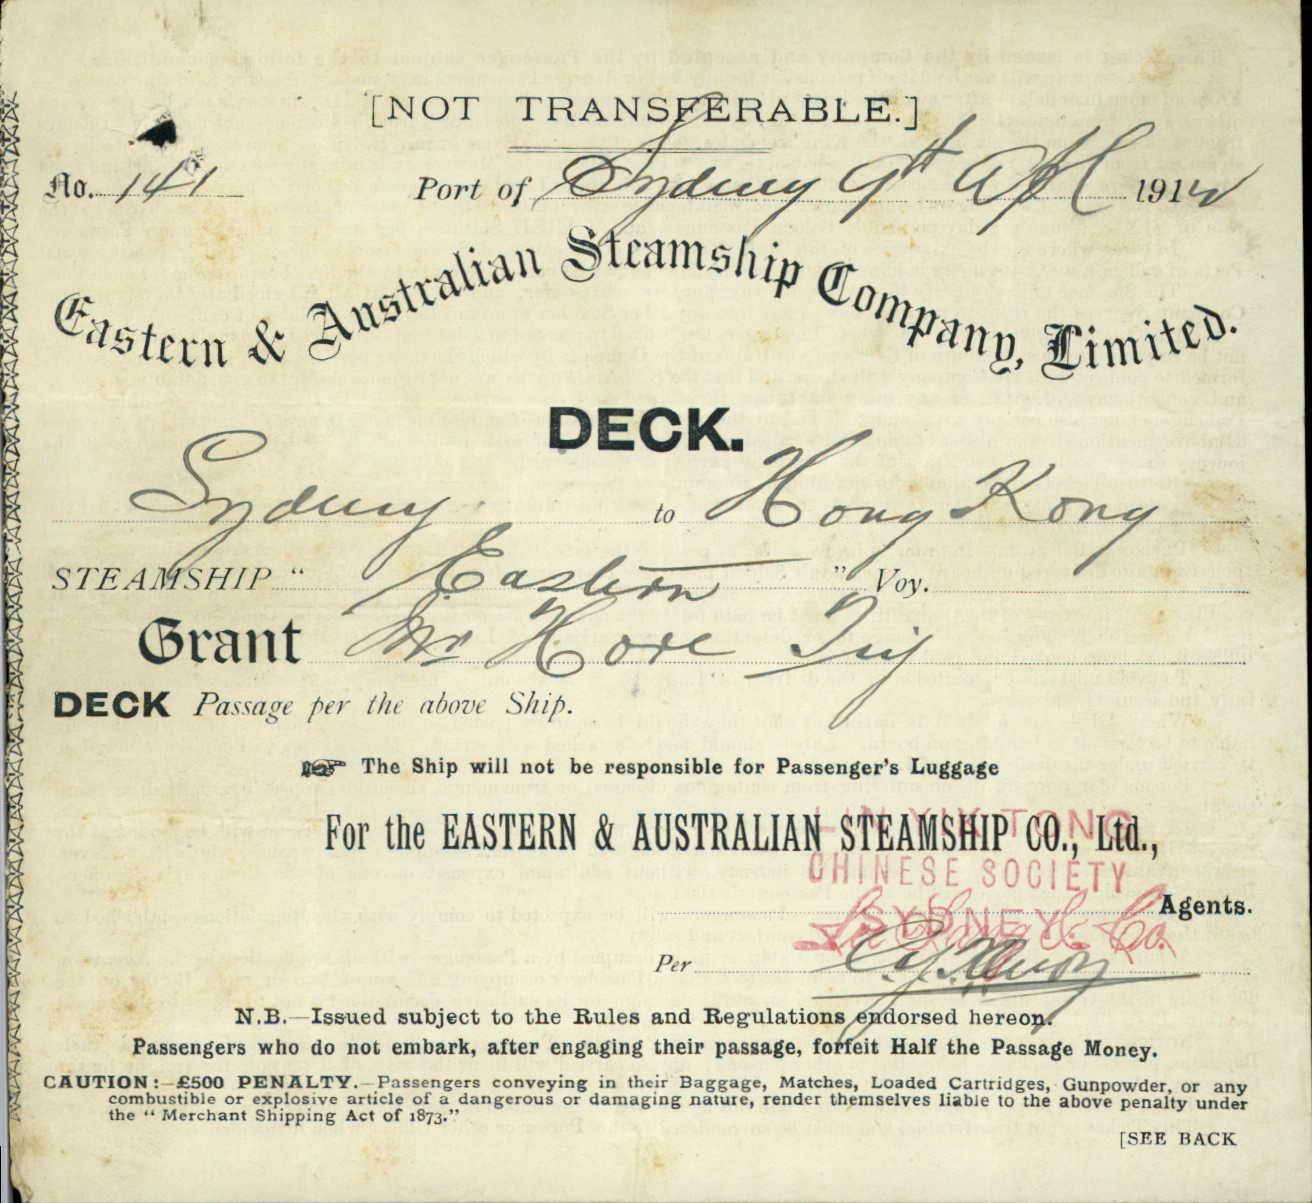 [NOT TRANSFERABLE.]
No. 141 Port of Sydney 9th Apl 191
Eastern & Australian Steamship Company, Limited.
DECK.
Sydney to Hong Kong
STEAMSHIP "Eastern" Voy.
Grant Mr Hore
DECK Passage per the above Ship.
☞ The Ship will not be responsible for Passenger's Luggage
For the EASTERN & AUSTRALIAN STEAMSHIP CO., Ltd.,
LIN YIK TONG
CHINESE SOCIETY
SYDNEY
Agents.
Per
N.B.—Issued subject to the Rules and Regulations endorsed hereon.
Passengers who do not embark, after engaging their passage, forfeit Half the Passage Money.
CAUTION:—£500 PENALTY.—Passengers conveying in their Baggage, Matches, Loaded Cartridges, Gunpowder, or any
combustible or explosive article of a dangerous or damaging nature, render themselves liable to the above penalty under
the "Merchant Shipping Act of 1873."
[SEE BACK